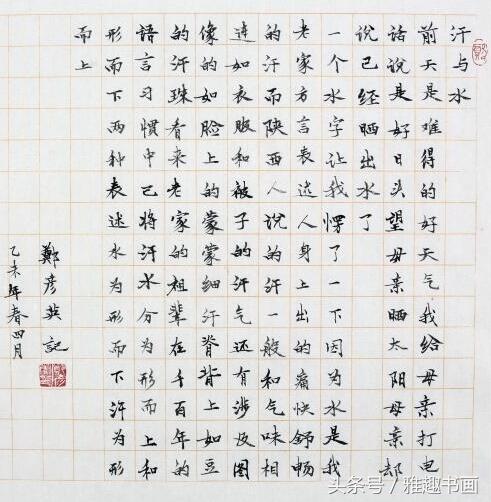 汗与水
前天是难得的好天气我给母亲打电
话说是好日头望母亲晒太阳母亲却
说已经晒出水了
一个水字让我愣了一下因为水是我
老家方言表述人身上出的痛快舒畅
的汗而陕西人说的汗一般和气味相
连如衣服和被子的汗气还有涉及图
像的如脸上的蒙蒙细汗脊背上如豆
的汗珠看来老家的祖辈在千百年的
语言习惯中已将汗水分为形而上和
形而下两种表述水为形而下汗为形
而上
鄭彦英記
乙未年春四月
头条号/雅趣书画